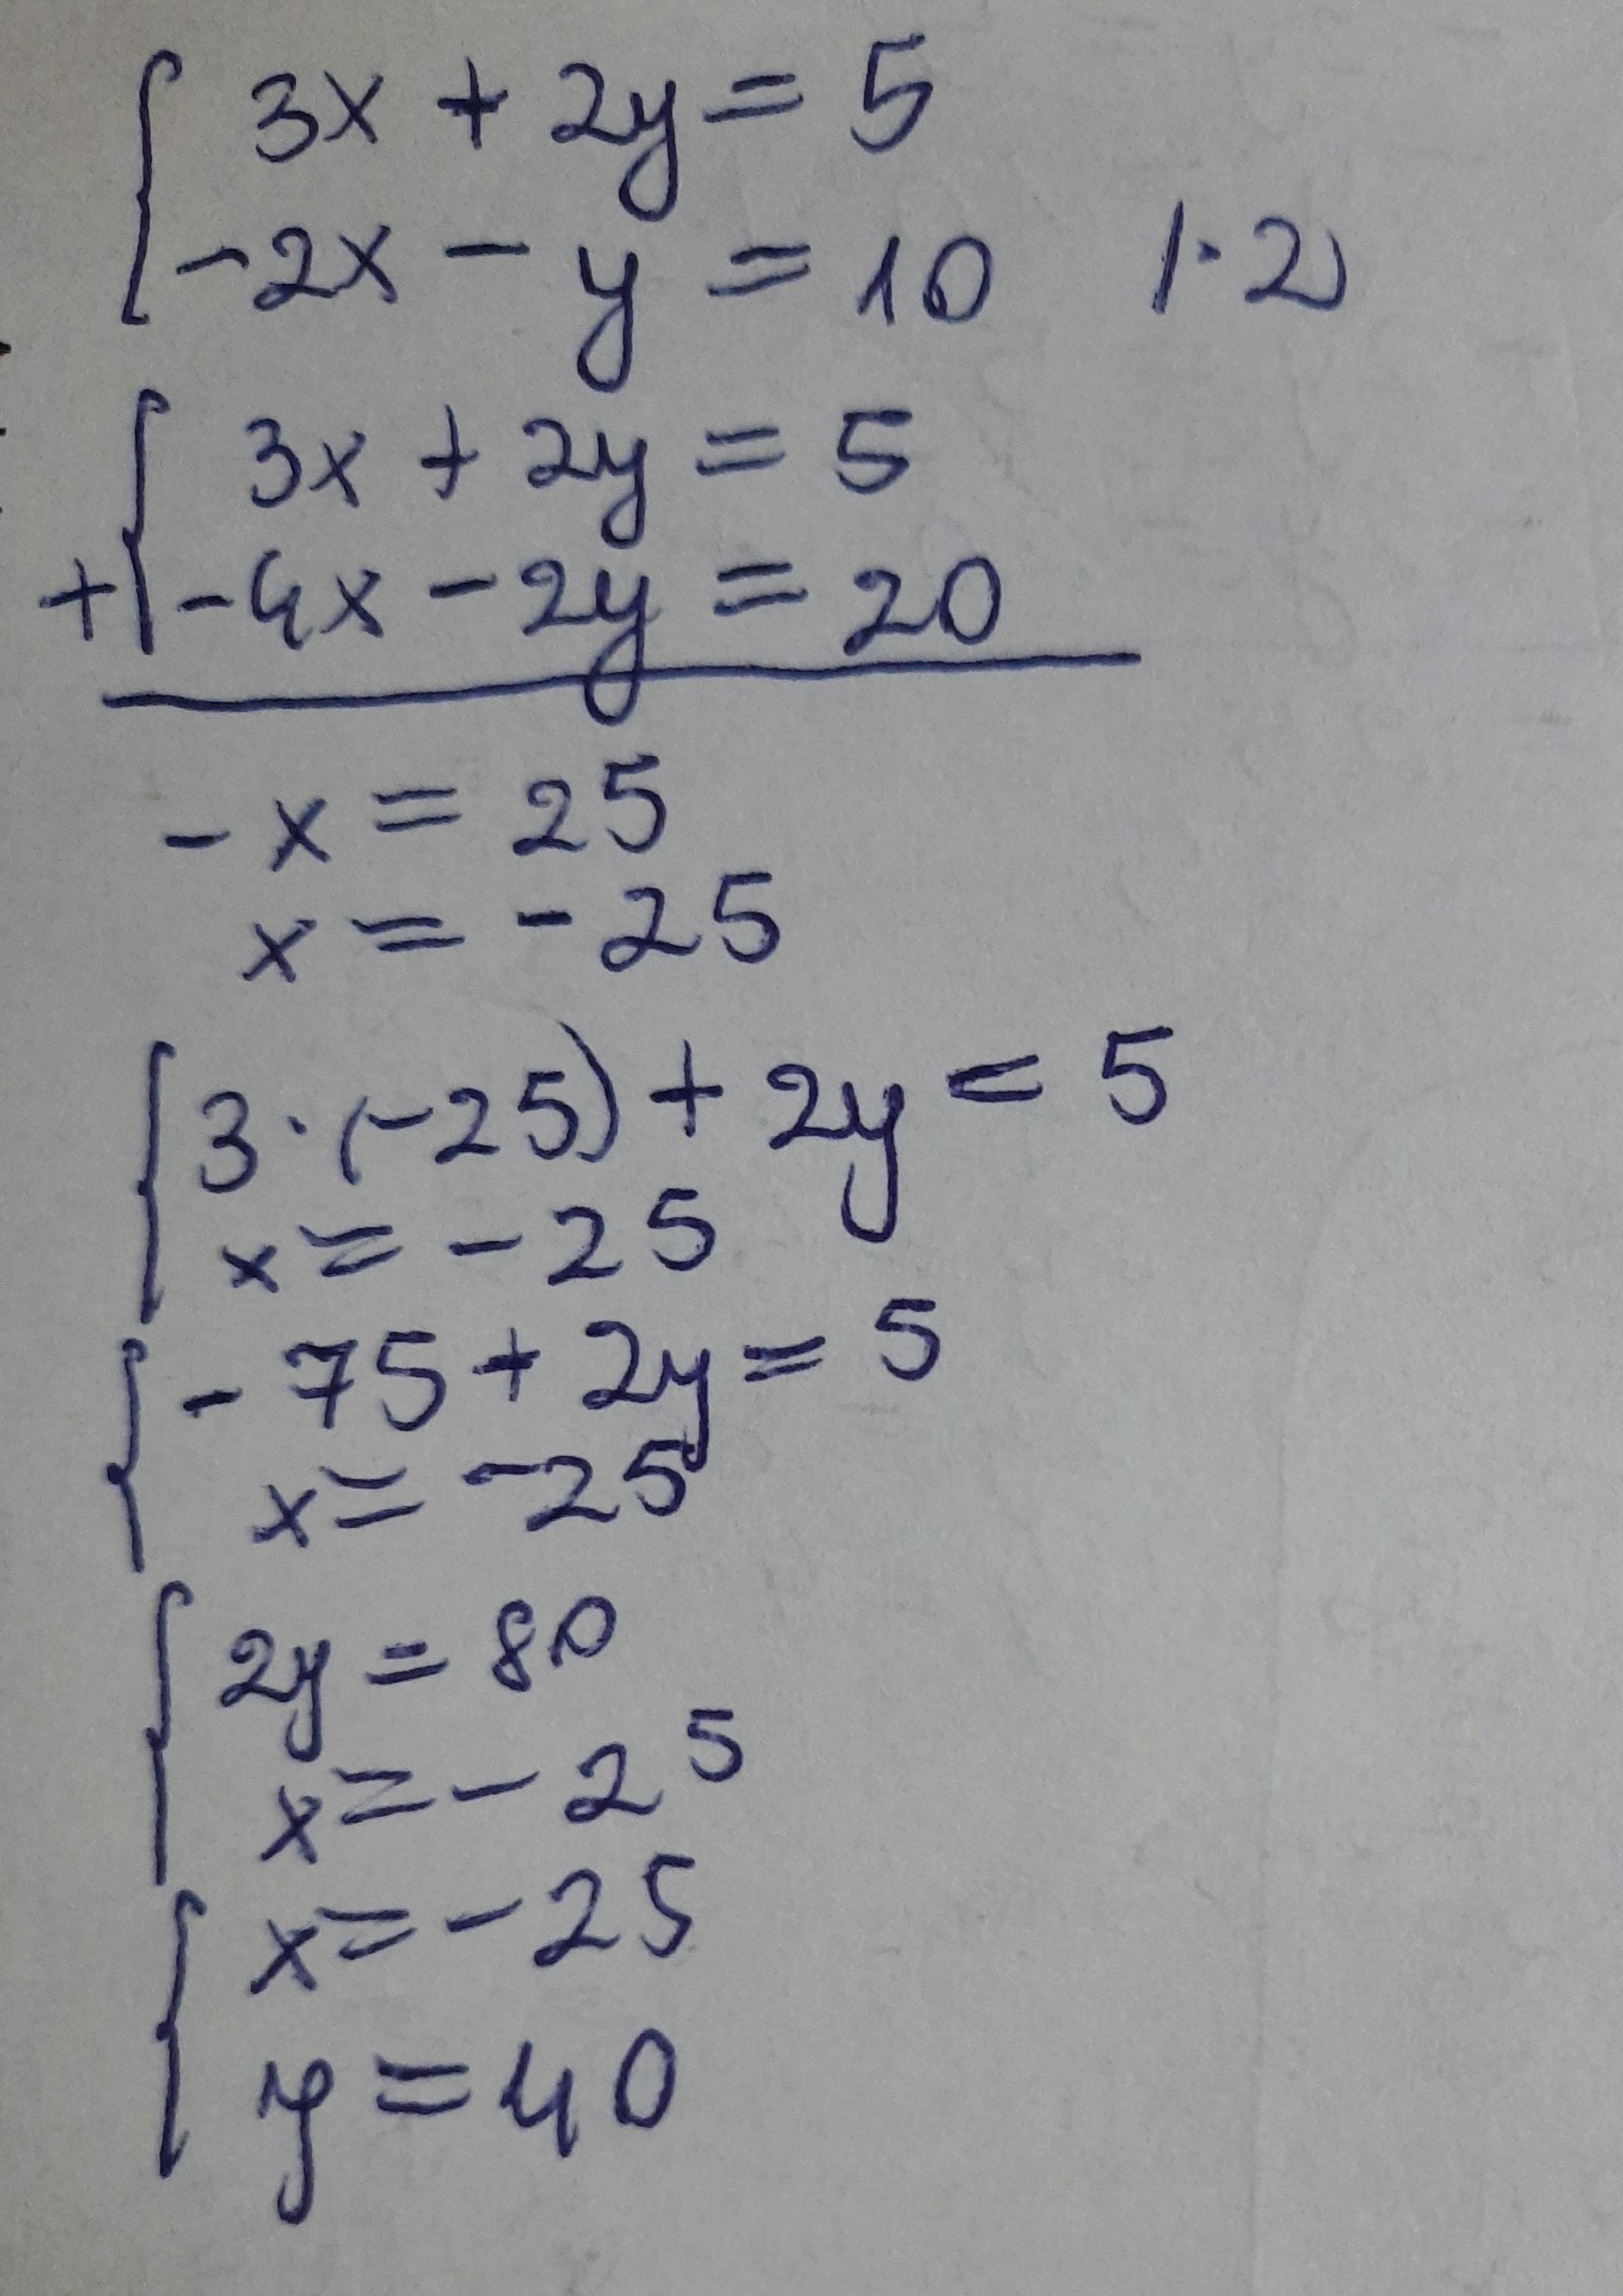 3x + 2y = 5
-2x - y = 10 |·2
3x + 2y = 5
+ -4x - 2y = 20
-x = 25
x = -25
3·(-25) + 2y = 5
x = -25
-75 + 2y = 5
x = -25
2y = 80
x = -25
x = -25
y = 40